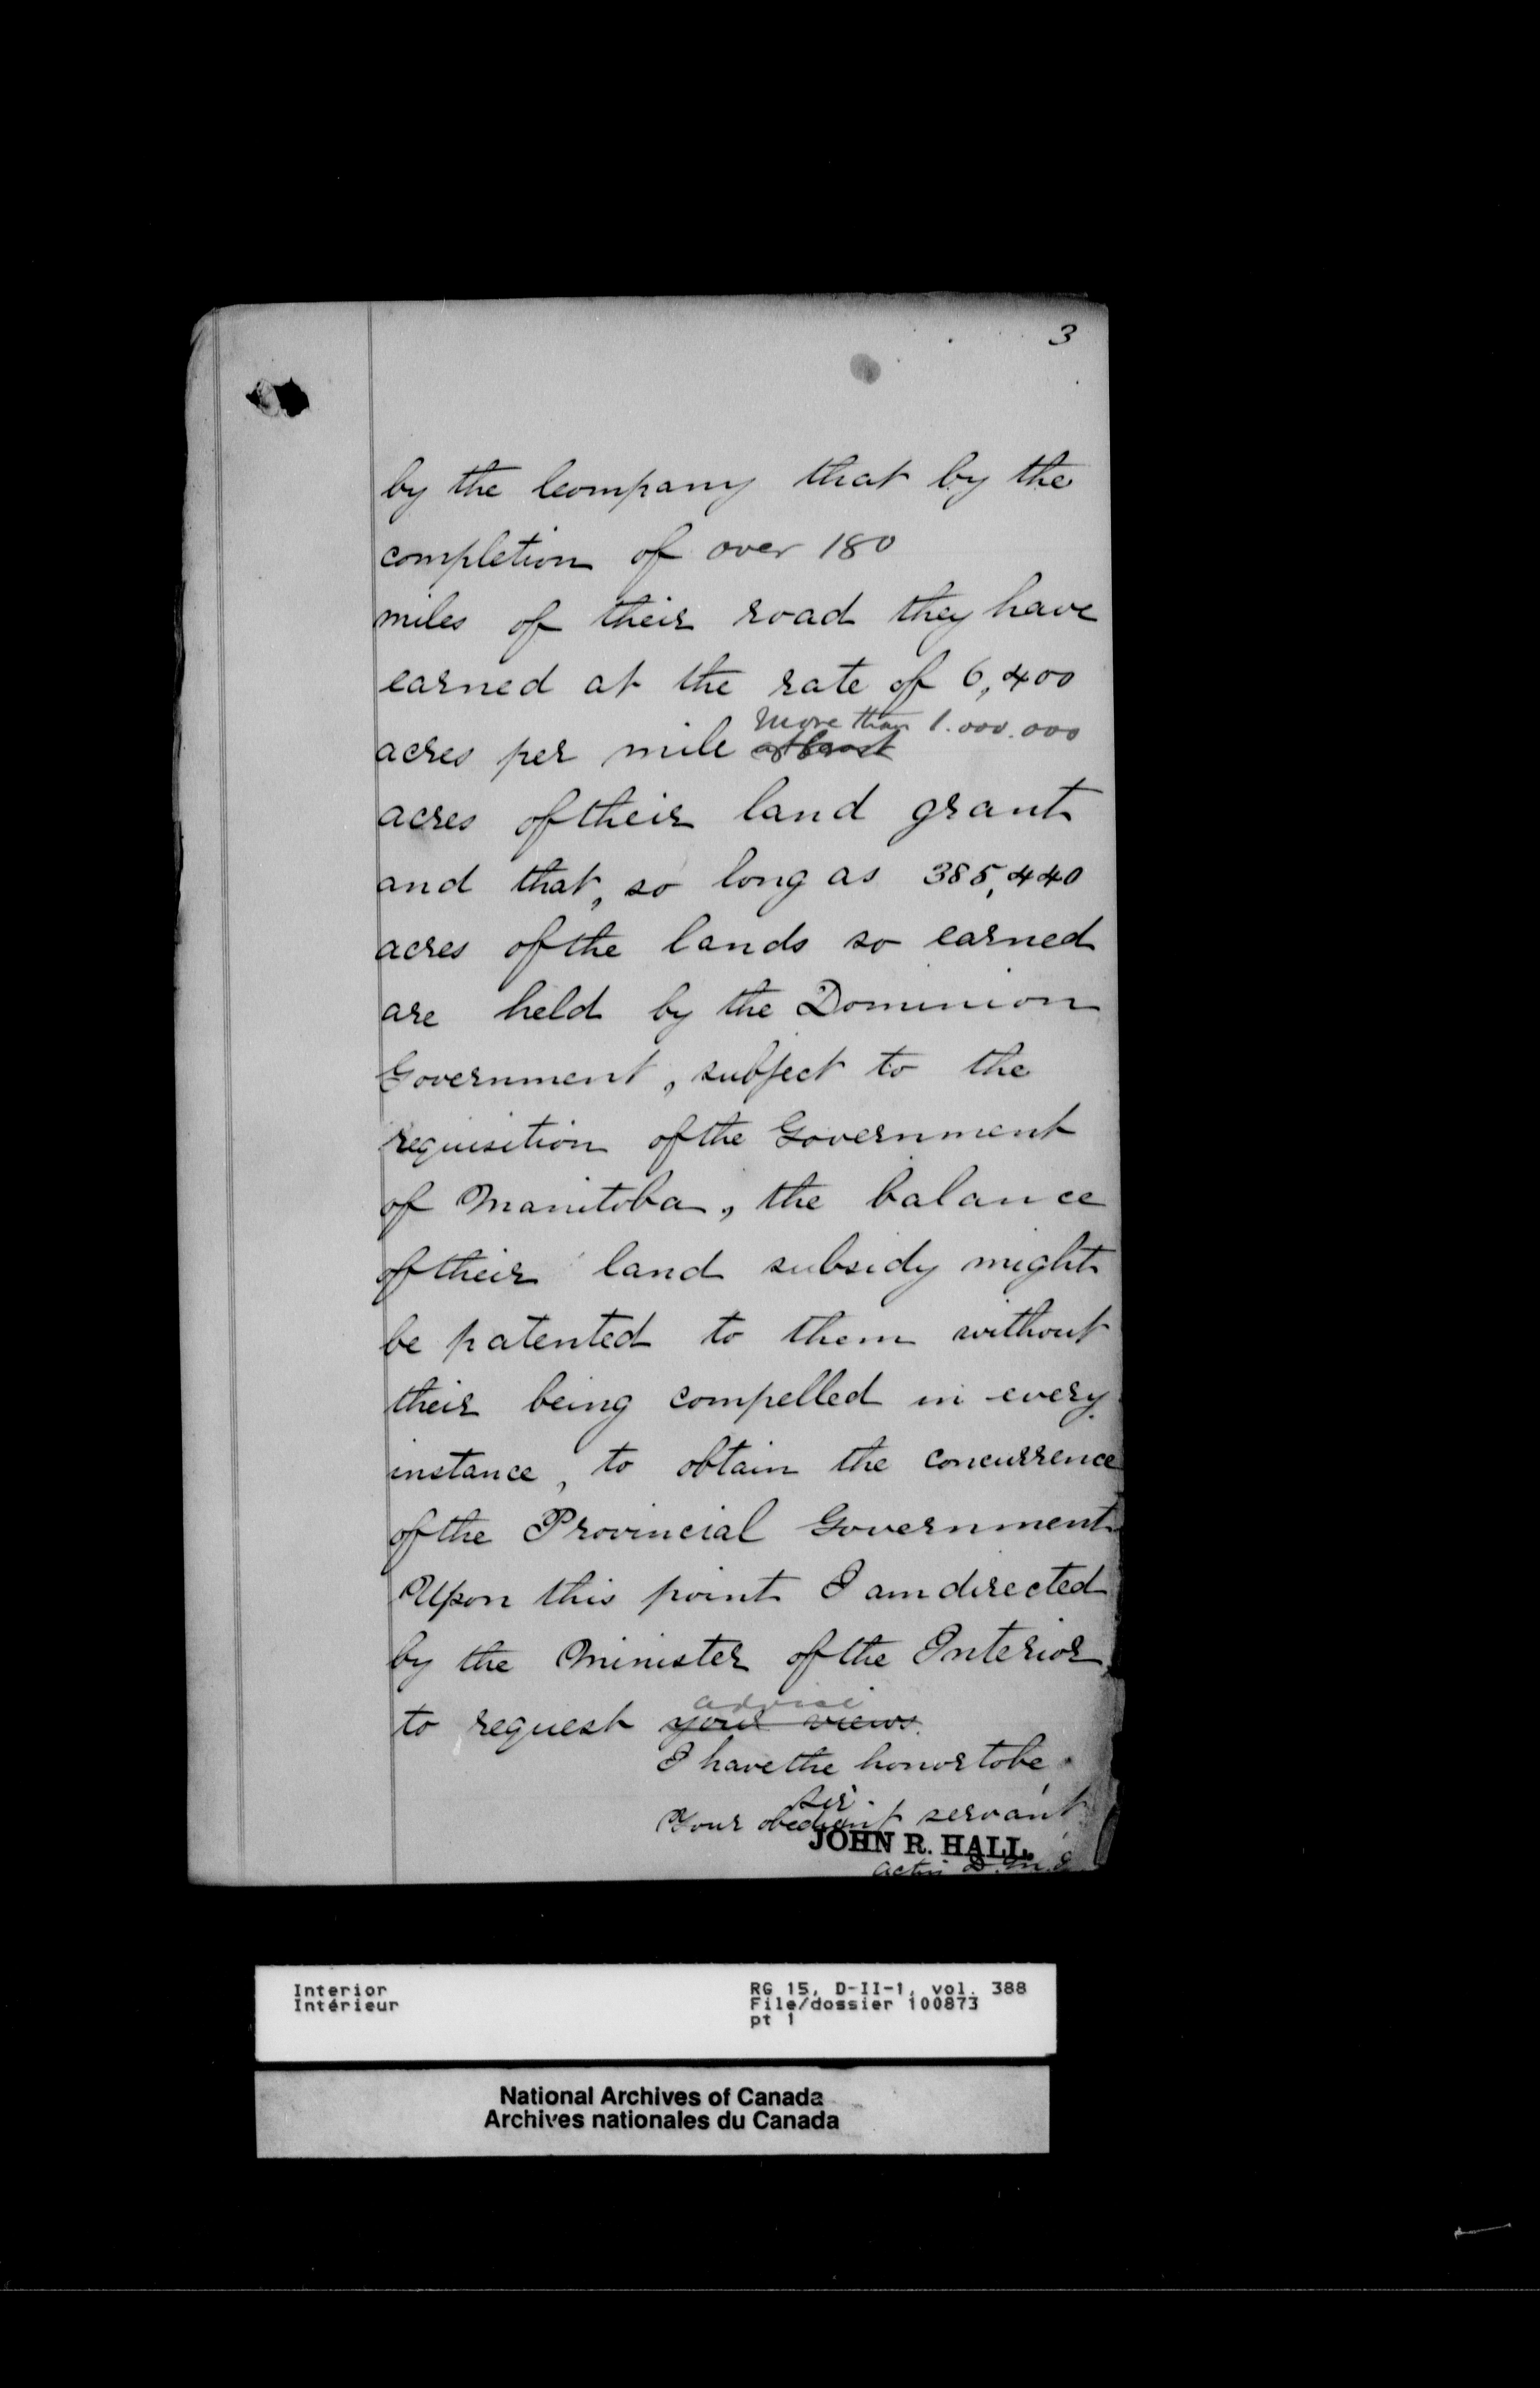 3
by the Company that by the
completion of over 180
miles of their road they have
earned at the rate of 6,400
more than 1.000.000
acres per mile at least
acres of their land grant
and that, so long as 385,440
acres of the lands so earned
are held by the Dominion
Government, subject to the
requisition of the Government
of Manitoba, the balance
of their land subsidy might
be patented to them without
their being compelled in every
instance, to obtain the concurrence
of the Provincial Government
Upon this point I am directed
by the Minister of the Interior
advice
to request your views.
I have the honor to be,
Sir.
Your obedient servant
JOHN R. HALL.
Actg D. M. I
Interior
Intérieur
RG 15, D-II-1, vol. 388
File/dossier 100873
pt 1
National Archives of Canada
Archives nationales du Canada